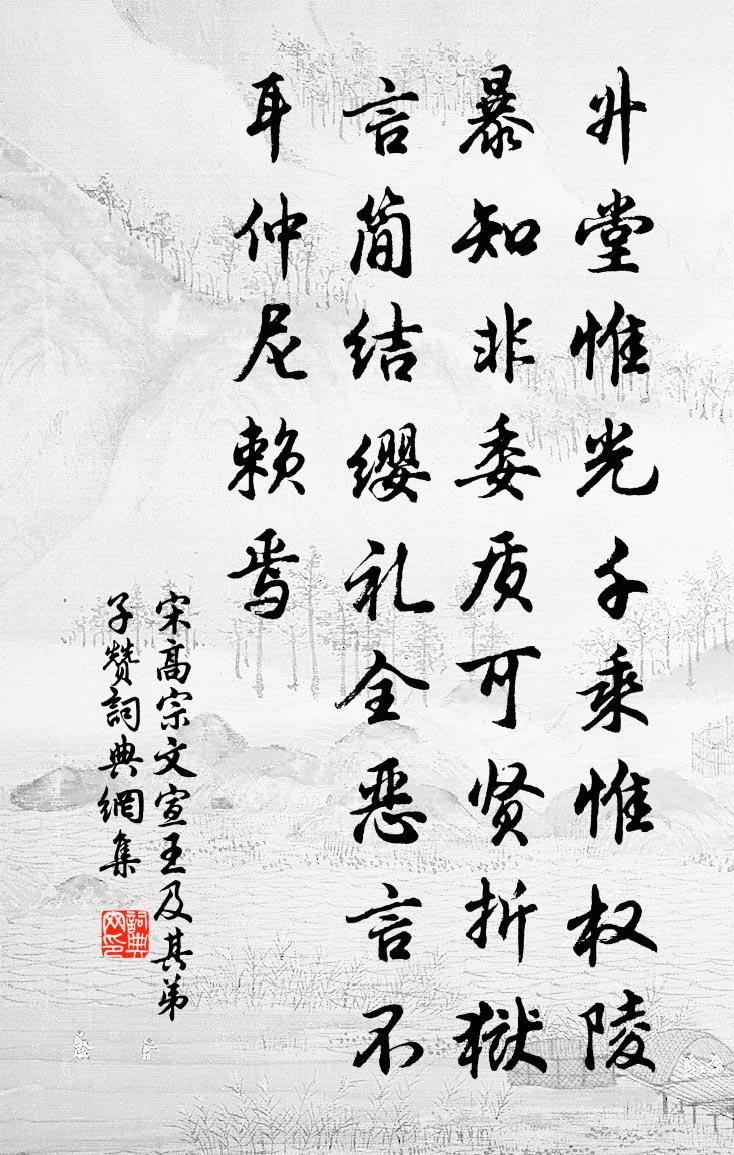 升堂惟光千乘惟权陵
暴知非委质可贤折狱
言简结缨礼全恶言不
耳仲尼赖焉
宋高宗文宣王及其弟
子赞詞典網集
詞典网印